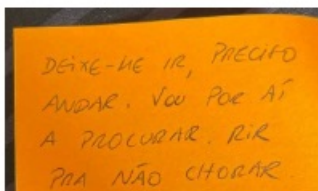 DEIXE-ME IR, PRECISO
ANDAR. VOU POR AÍ
A PROCURAR. RIR
PRA NÃO CHORAR.